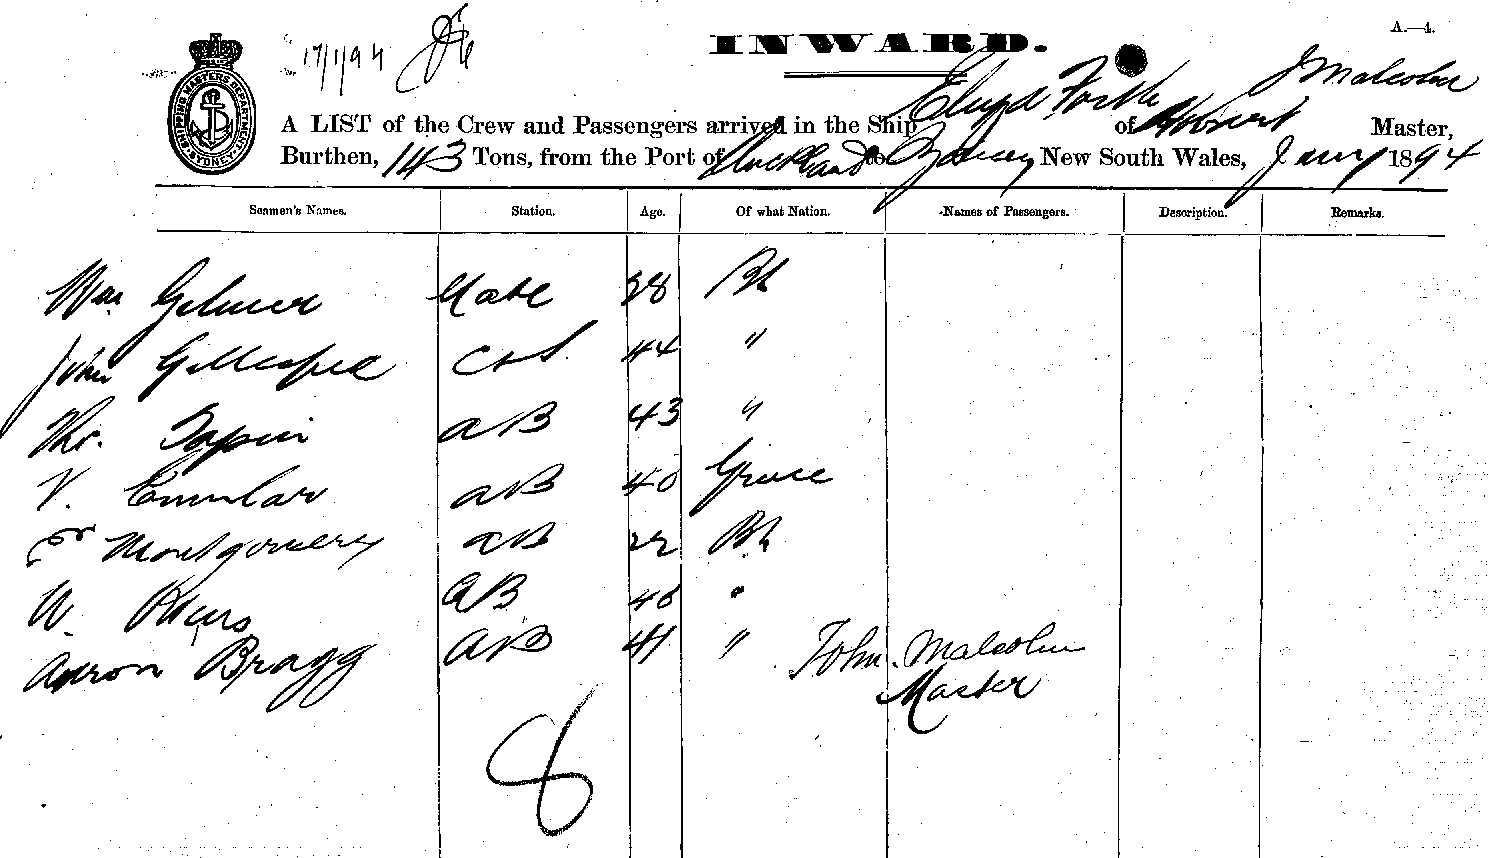 17/1/94
INWARD.
A.—4.
SHIPPING MASTERS DEPARTMENT SYDNEY
A LIST of the Crew and Passengers arrived in the Ship of Hobart J Malcolm Master,
Burthen, 143 Tons, from the Port of Auckland to Sydney New South Wales, Jany 1894
Seamen's Names. Station. Age. Of what Nation. Names of Passengers. Description. Remarks.
Wm Gilmer Mate 28 Bh
John Gillespie C&S 44 "
Thos. AB 43 "
V. AB 40 Greece
Montgomery AB 22 Bh
W. AB 40 "
Aaron Bragg AB 41 " John Malcolm
Master
8